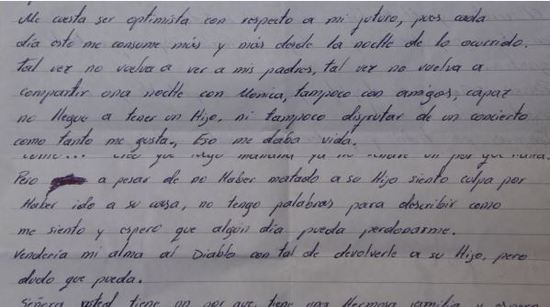 Me cuesta ser optimista con respecto a mi futuro, pues cada
día esto me consume más y más desde la noche de lo ocurrido.
Tal vez no vuelva a ver a mis padres, tal vez no vuelva a
compartir una noche con Monica, tampoco con amigos, capaz
no llegue a tener un Hijo, ni tampoco disfrutar de un concierto
como tanto me gusta, Eso me daba vida.
Pero a pesar de no Haber matado a su Hijo siento culpa por
Haber ido a su casa, no tengo palabras para describir como
me siento y espero que algún día pueda perdonarme.
Vendería mi alma al Diablo con tal de devolverle a su Hijo, pero
dudo que pueda.
Señora usted tiene un por que, tiene una Hermosa familia y